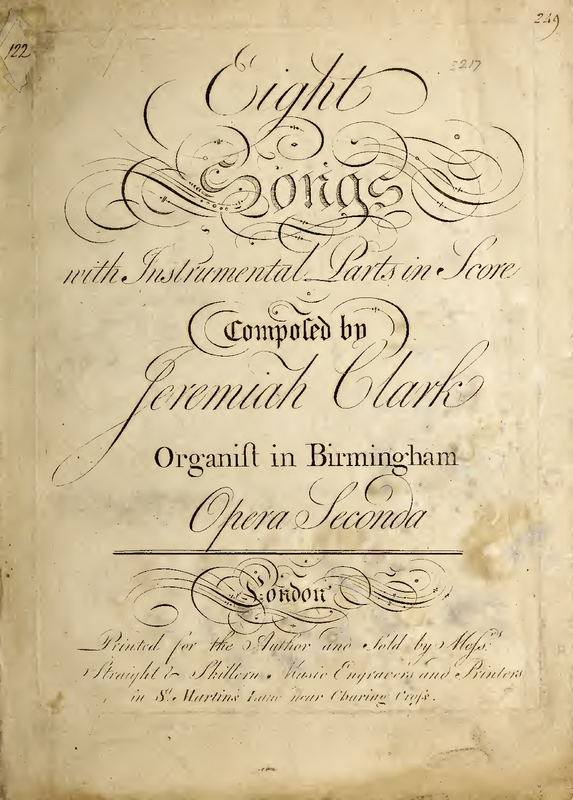 122
249
3217
Eight
Songs
with Instrumental Parts in Score
Compoſed by
Jeremiah Clark
Organiſt in Birmingham
Opera Seconda
London
Printed for the Author and Sold by Meſs.rs
Straight & Skillern Music Engravers and Printers
in S.t Martins Lane near Charing Croſs.